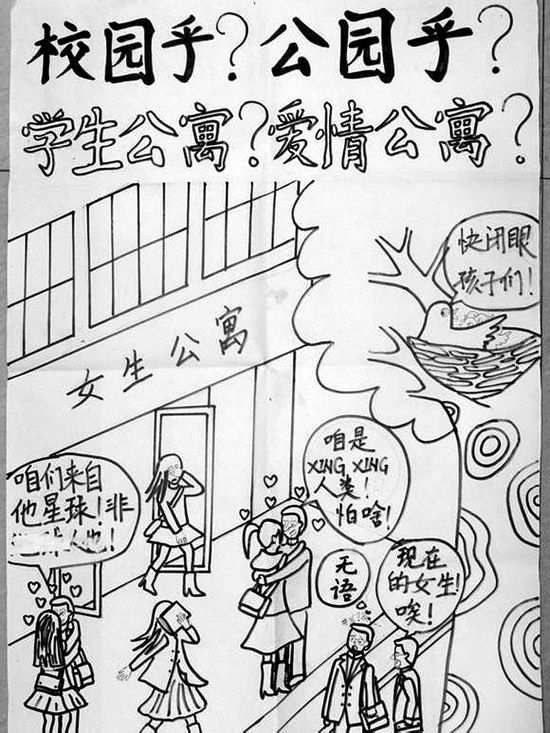 校园乎？公园乎？
学生公寓？爱情公寓？
快闭眼
孩子们！
女生公寓
咱是
XING XING
人类！
怕啥！
咱们来自
他星球！非
人也！
无
语
现在
的女生！
唉！